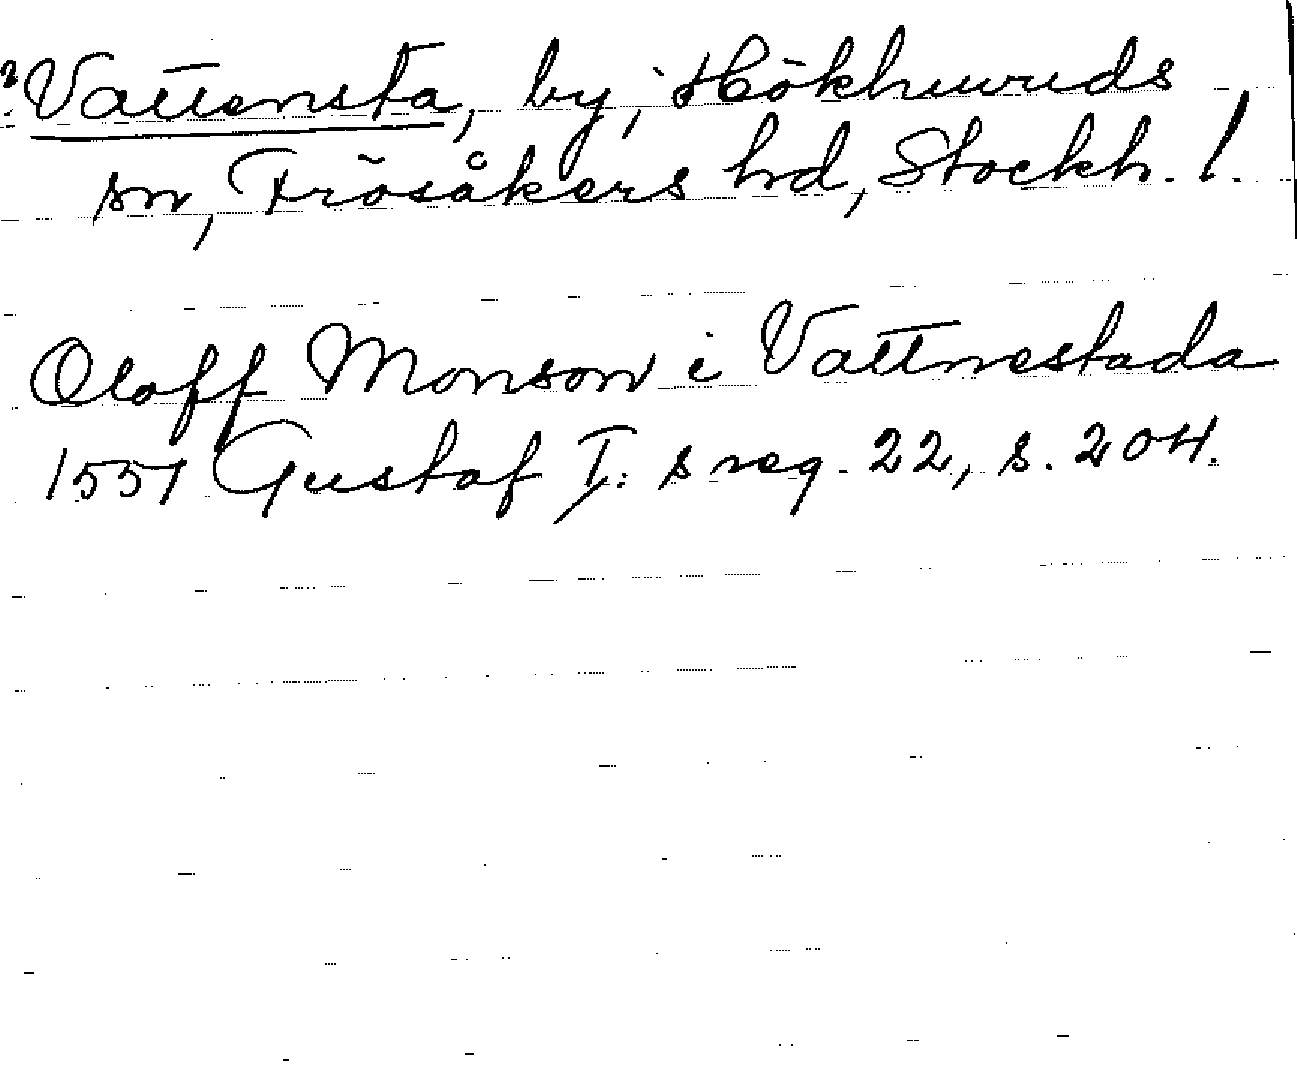 ? Vattensta, by, Hökhuvuds
sn, Frösåkers hd, Stockh. l.
Oloff Monson i Vattnestada
1551 Gustaf I:s reg. 22, s. 204.